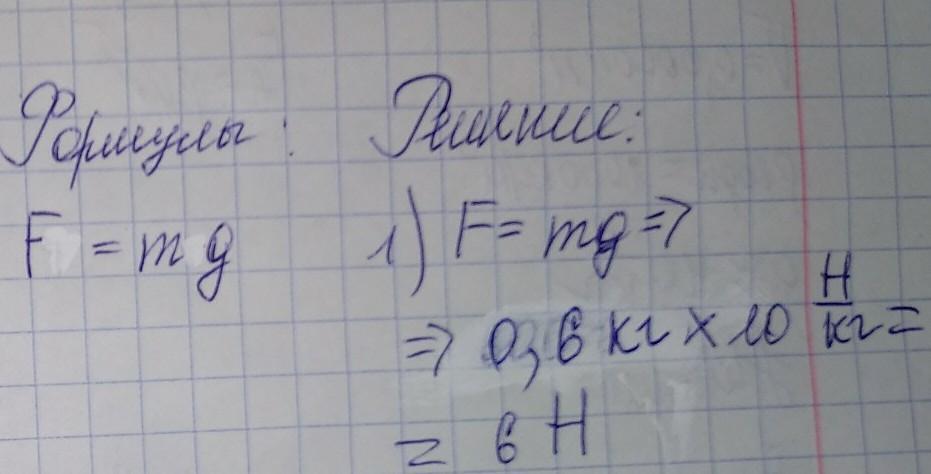 Формулы: Решение:
F = mg 1) F = mg =>
=> 0,6 кг × 10 Н/кг =
= 6 Н